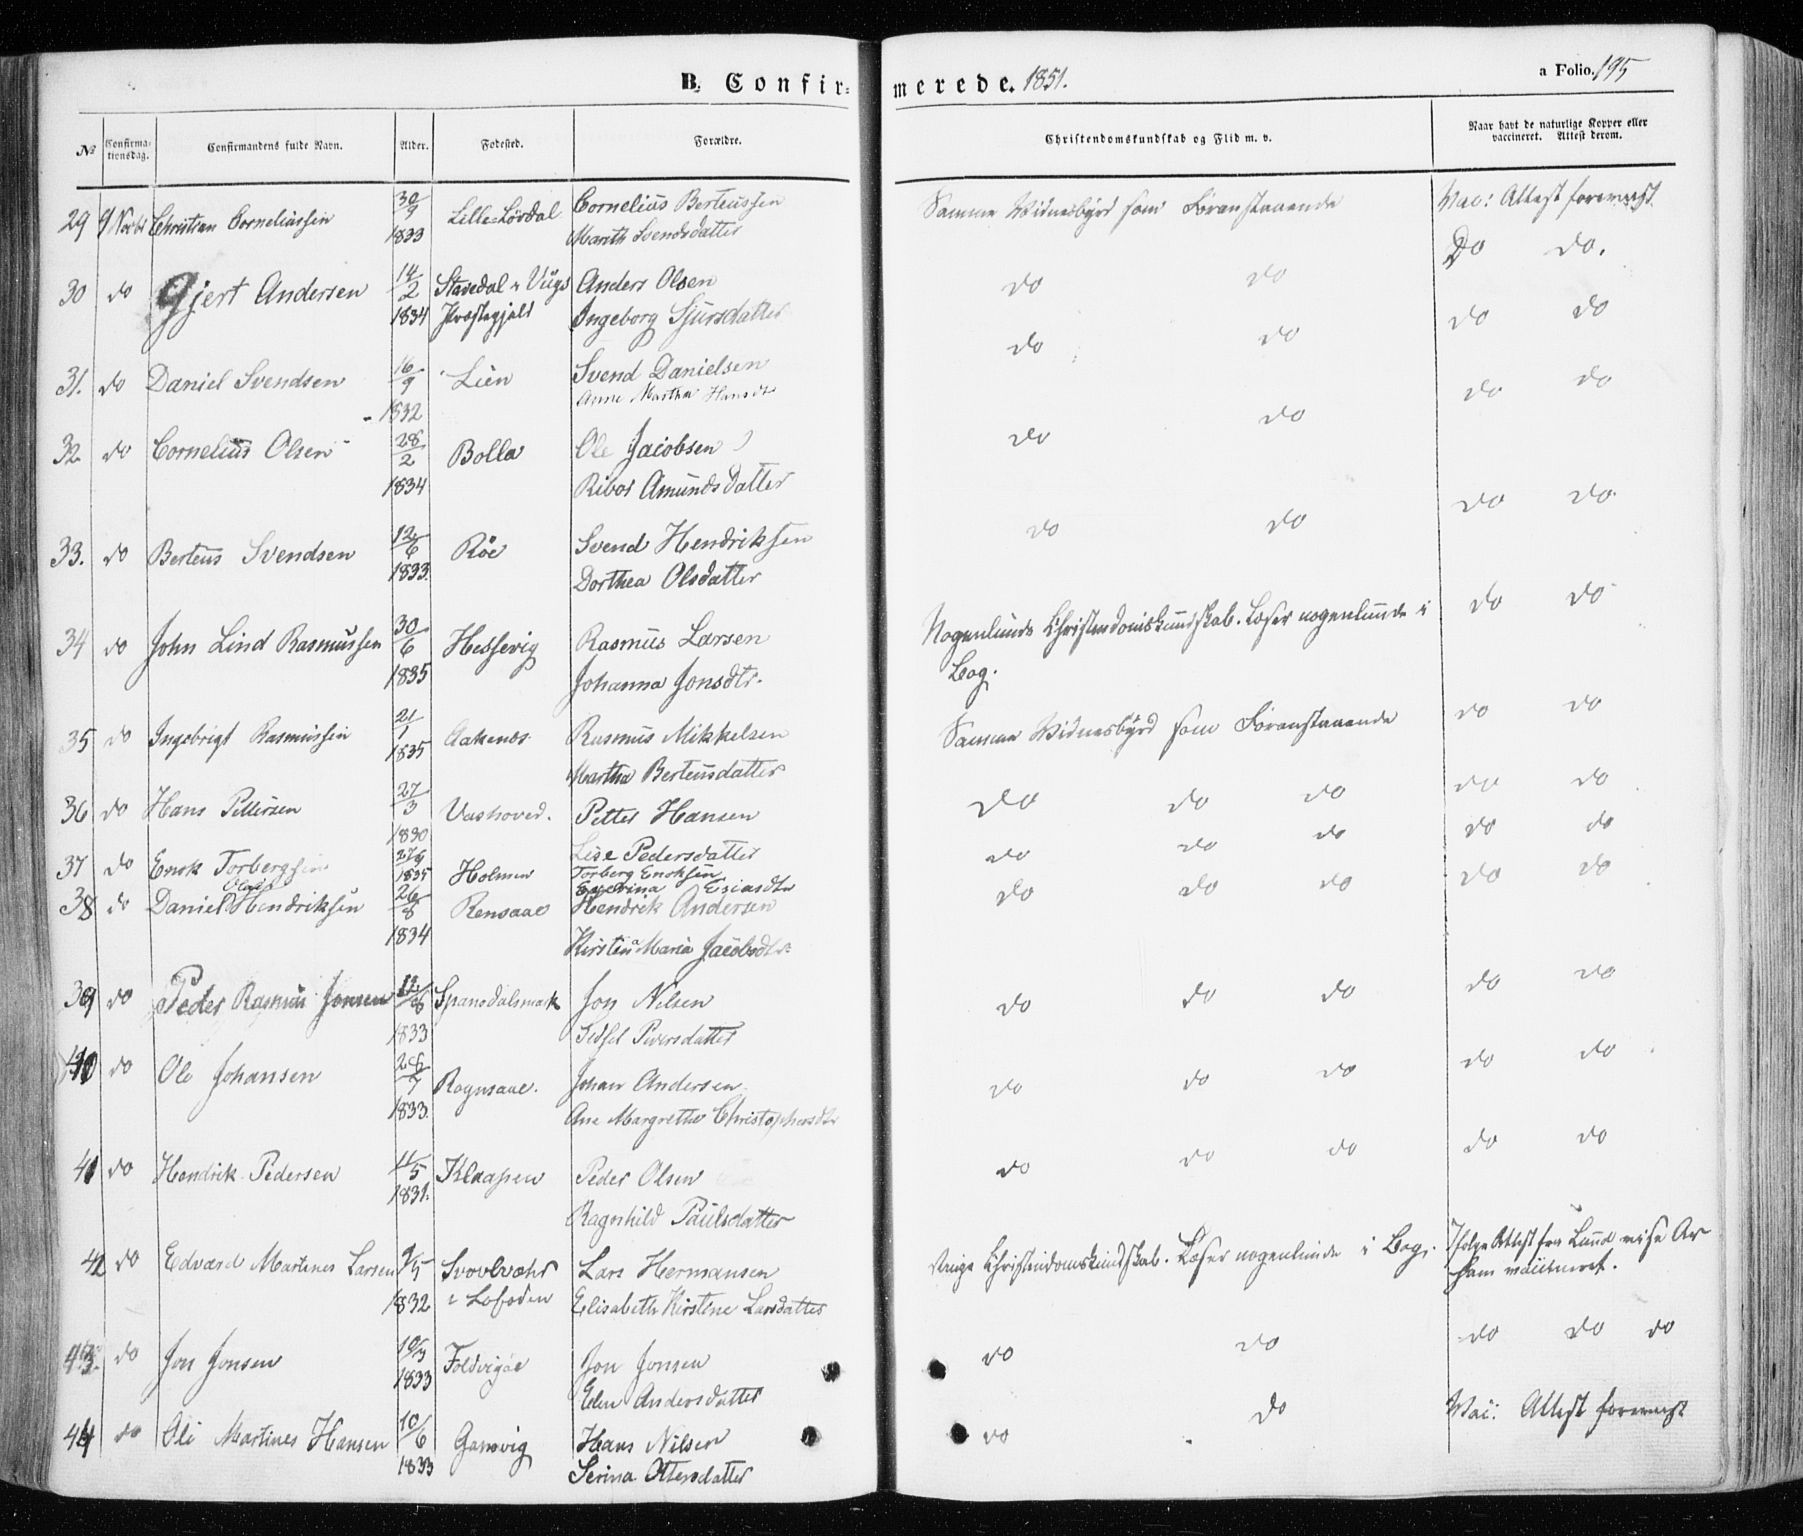 B. Confir=
merede. 1851.
a Folio. 195
№ Confirma-tionsdag. Confirmandens fulde Navn. Alder. Fødested. Forældre. Christendomskundskab og Flid m. v. Naar havt de naturlige Kopper eller vaccineret. Attest derom.
29 9 Novbr Christian Corneliussen 30/9 1833 Lille-Lövdal Cornelius Berteussen Samme Vidnesbyrd som Foranstaaende Vac: Attest forevvist
Mareth Svendsdatter
30 do Gjert Andersen 14/2 1834 Stavedal Anders Olsen do do Do do.
Præstegjeld Ingeborg Sjursdatter
31. do Daniel Svendsen 16/9 1832 Lien Svend Danielsen do do do do
Anne Martha Hansdt
32 do Cornelius Olsen 28/2 1834 Bolla Ole Jacobsen do do do do
Ribor Amundsdatter
33. do Berteus Svendsen 12/6 1833. Röe Svend Hendriksen do do do do
Dorthea Olsdatter
34 do John Lind Rasmussen 30/6 1835 Hessevig Rasmus Larsen Nogenlunde Christendomskundskab. Læser nogenlunde i do do
Johanna Jonsdtr. Bog.
35 do Ingebrigt Rasmussen 21/1 1835 Aakenes Rasmus Mikkelsen Samme Vidnesbyrd som Foranstaaende do do
Martha Berteusdatter
36 do Hans Pettersen 27/3 1830 Vashoved. Petter Hansen do do do do do
Lise Pedersdatter
37 do Enok Torbergsen 27/9 1835 Holmen Torberg Enoksen do do do do do
Everina Esiasdtr
38 do Daniel Olai Hendriksen 26/8 1834 Rensaae Hendrik Andersen do do do do do
Kirstina Maria Jacobsdtr.
39 do Peder Rasmus Jonsen 12/8 1833 Spansdalsmark Jon Nilsen do do do do do
Sidsel Peversdatter
40 do Ole Johansen 26/7 1833. Rognsaae. Johan Andersen do do do do do
Ane Margrethe Christophersdtr
41 do Hendrik Pedersen 11/5 1831. Klaapen Peder Olsen do do do do do
Ragnhild Paulsdatter
42 do Edvard Martines Larsen 9/5 1832 Svolvær Lars Hermansen Ringe Christendomskundskab. Læser nogenlunde i Bog. Ifølge Attest fra Lund
i Lofoden Elisabeth Kirstine Larsdatter ham vaccineret.
43. do Jon Jonsen 10/3 1833 Foldvigöe Jon Jonsen do do do do do
Elen Andersdatter
44 do Ole Martines Hansen 10/6 1833 Gamvig Hans Nilsen do do Vac: Attest forevvist
Serina Ottersdatter